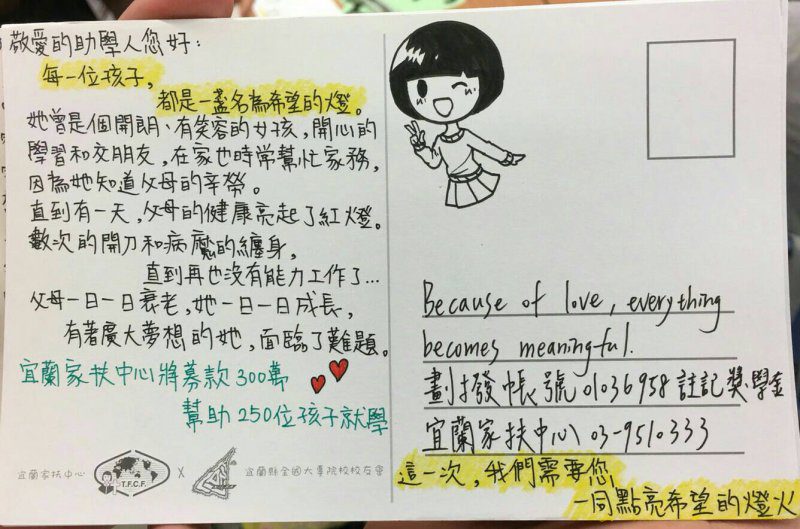 敬愛的助學人您好：
每一位孩子，
都是一盞名為希望的燈。
她曾是個開朗、有笑容的女孩，開心的
學習和交朋友，在家也時常幫忙家務，
因為她知道父母的辛勞。
直到有一天，父母的健康亮起了紅燈。
數次的開刀和病魔的纏身，
直到再也沒有能力工作了...
父母一日一日衰老，她一日一日成長，
有著廣大夢想的她，面臨了難題。
宜蘭家扶中心將募款300萬
幫助250位孩子就學
宜蘭家扶中心 T.F.C.F. X 宜蘭縣全國大專院校校友會
Because of love, everything
becomes meaningful.
劃撥帳號01036958註記獎學金
宜蘭家扶中心 03-9510333
這一次，我們需要您，
一同點亮希望的燈火